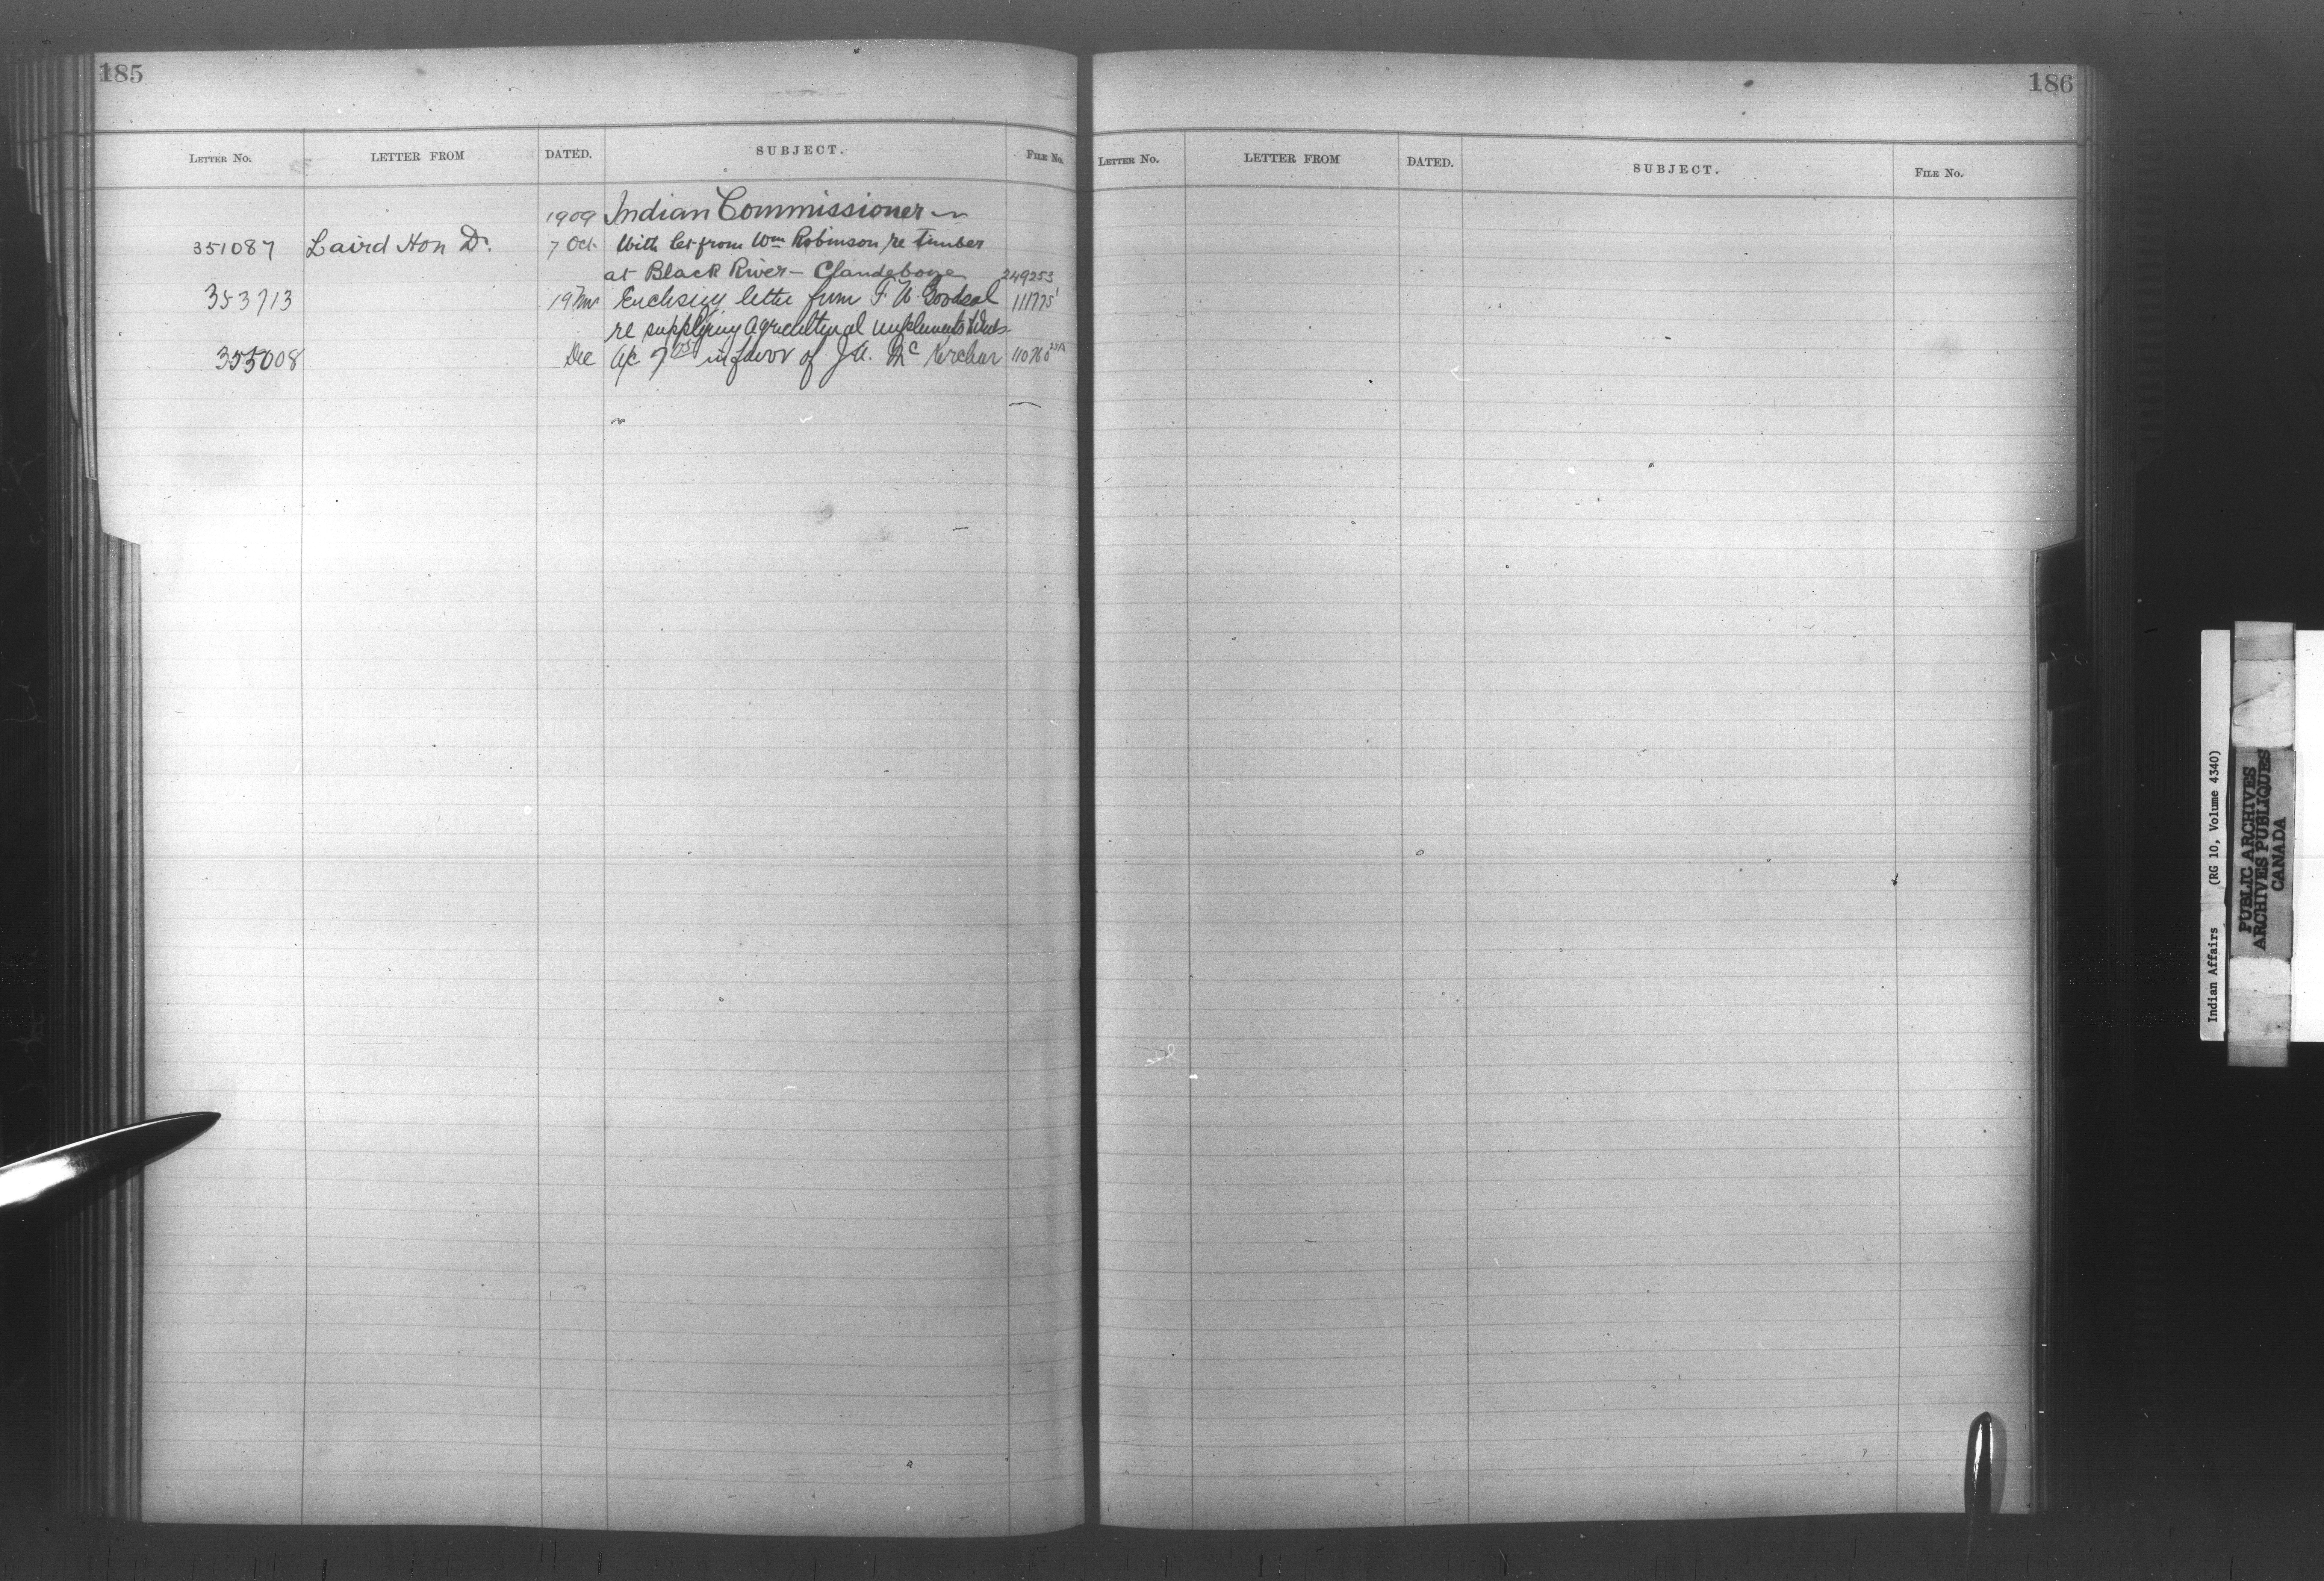 185
LETTER No. LETTER FROM DATED. SUBJECT. FILE No.
1909 Indian Commissioner
351087 Laird Hon D. 7 Oct. With let from Wm Robinson re Timber
at Black River - Clandeboye 249253
353713 19 Nov Enclosing letter from F. W. Goodeal 111775
re supplying agricultural implements
355008 Dec a/c in favor of J. A. Mc Kerchar 110760
186
LETTER No. LETTER FROM DATED. SUBJECT. FILE No.
Indian Affairs (RG 10, Volume 4340)
PUBLIC ARCHIVES
ARCHIVES PUBLIQUES
CANADA